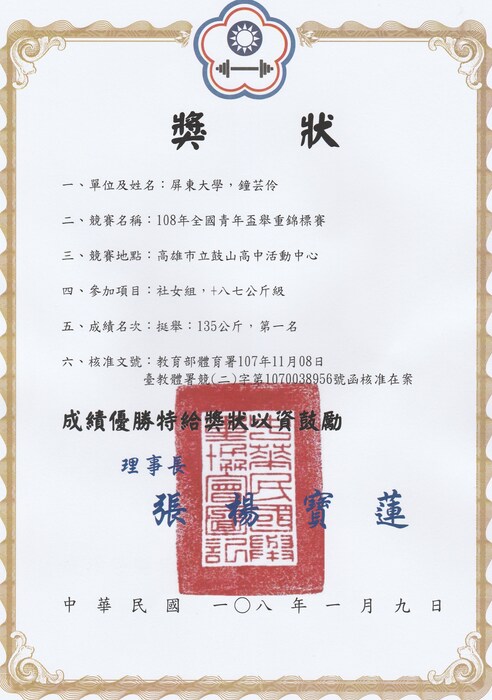 獎狀
一、單位及姓名：屏東大學，鐘芸伶
二、競賽名稱：108年全國青年盃舉重錦標賽
三、競賽地點：高雄市立鼓山高中活動中心
四、參加項目：社女組，+八七公斤級
五、成績名次：挺舉：135公斤，第一名
六、核准文號：教育部體育署107年11月08日
臺教體署競(二)字第1070038956號函核准在案
成績優勝特給獎狀以資鼓勵
理事長
張楊寶蓮
中華民國一〇八年一月九日